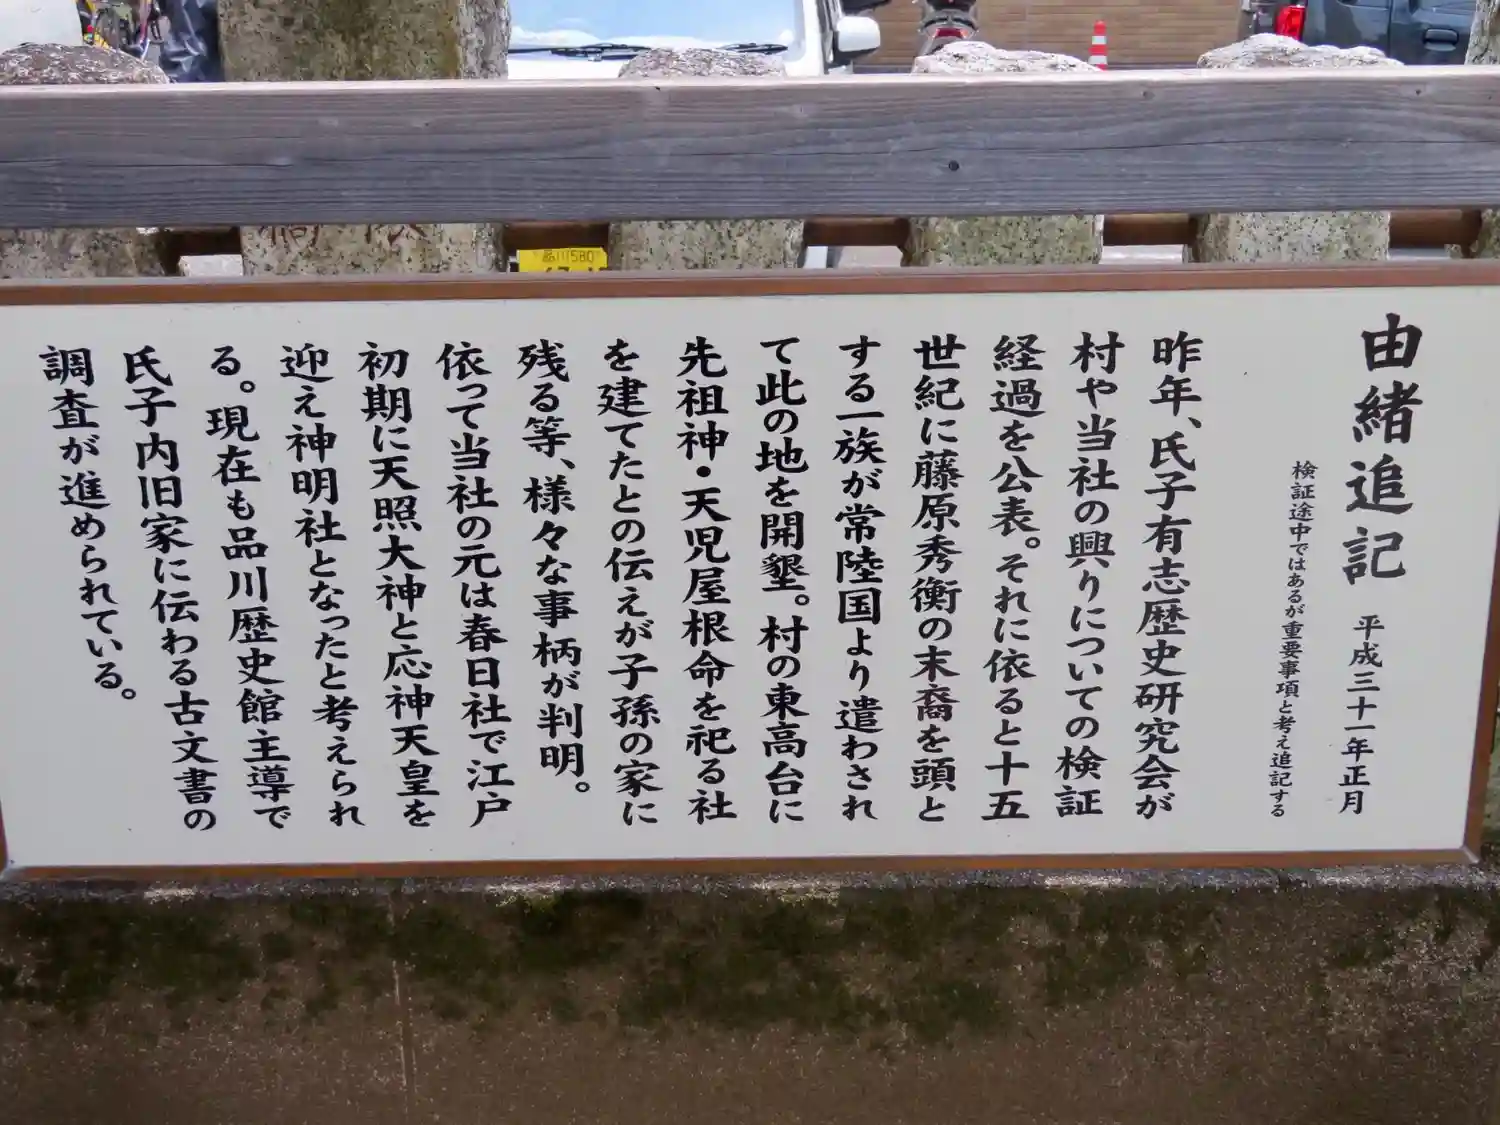 由緒追記 平成三十一年正月
検証途中ではあるが重要事項と考え追記する
昨年、氏子有志歴史研究会が
村や当社の興りについての検証
経過を公表。それに依ると十五
世紀に藤原秀衡の末裔を頭と
する一族が常陸国より遣わされ
て此の地を開墾。村の東高台に
先祖神・天児屋根命を祀る社
を建てたとの伝えが子孫の家に
残る等、様々な事柄が判明。
依って当社の元は春日社で江戸
初期に天照大神と応神天皇を
迎え神明社となったと考えられ
る。現在も品川歴史館主導で
氏子内旧家に伝わる古文書の
調査が進められている。
品川580